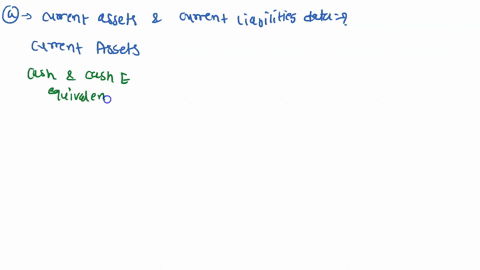 ⓐ → current assets & current liabilities data =?
current Assets
cash & cash E
equivalen